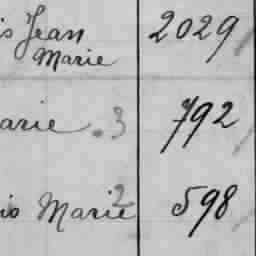 is Jean 2029
Marie
arie .3 792
is Marie 2 598